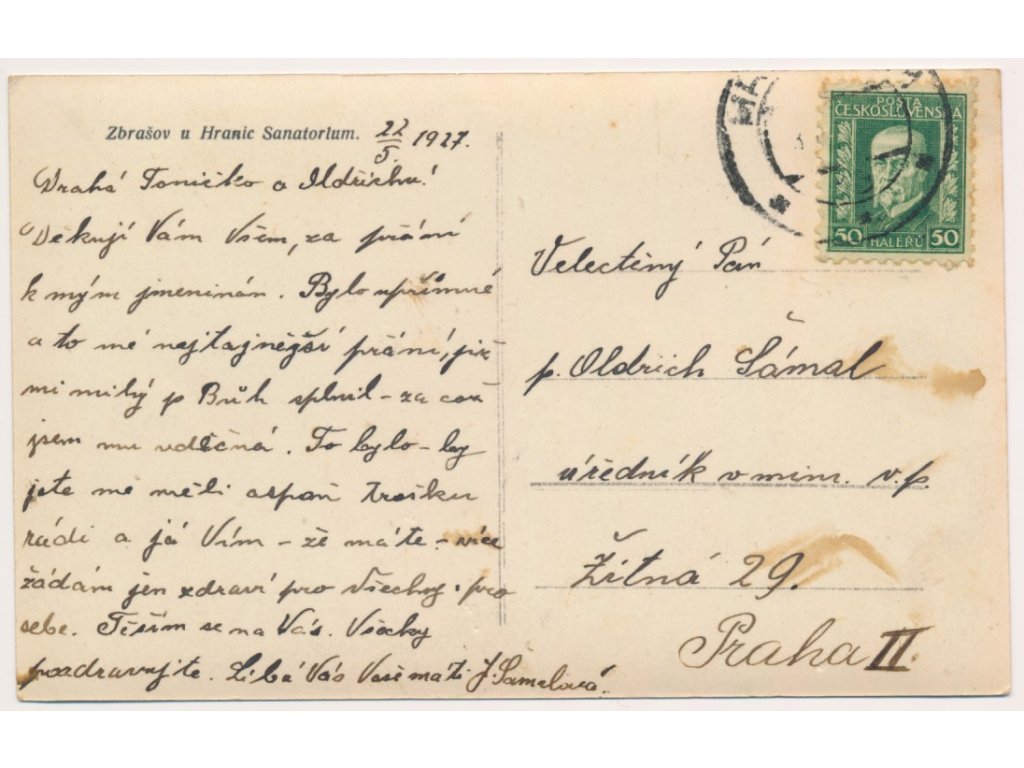 Zbrašov u Hranic Sanatorium. 22/5. 1927.
Drahá Toničko a Oldřichu!
Děkuji Vám Všem, za přání
k mým jmeninán. Bylo upřímné
a to mé nejtajnější přání, již
mi milý p Bůh splnil – za což
jsem mu vděčná. To bylo – by
jste mě měli aspaň trošku
rádi a já Vím – že máte – více
žádám jen zdraví pro Všechny i pro
sebe. Těším se na Vás. Všecky
pozdravujte. Líbá Vás Vaše máti J. Šámalová.
POSTA
ČESKOSLOVENSKÁ
50 HALERŮ 50
Velectěný Pán
p. Oldřich Šámal
úředník v min. v.p.
Žitná 29.
Praha II.